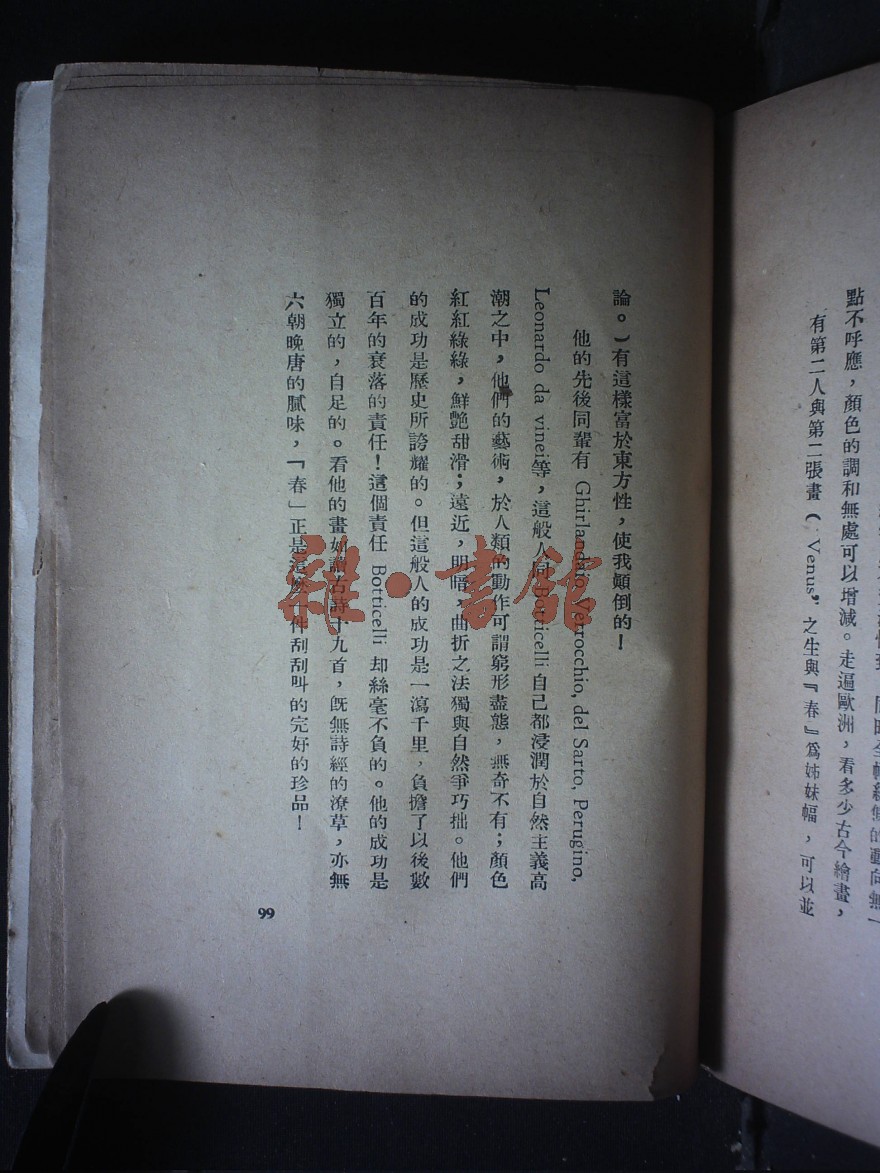 的動向無一
點不呼應，顏色的調和無處可以增減。走遍歐洲，看多少古今繪畫，
有第二人與第二張畫（„Venus” 之生與『春』爲姊妹幅，可以並
論。）有這樣富於東方性，使我顚倒的！
他的先後同輩有 Ghirlandaio, Verrocchio, del Sarto, Perugino,
Leonardo da vinei等，這般人同 Botticelli 自己都浸潤於自然主義高
潮之中，他們的藝術，於人類的動作可謂窮形盡態，無奇不有；顏色
紅紅綠綠，鮮艷甜滑；遠近，明暗，曲折之法獨與自然爭巧拙。他們
的成功是歷史所誇耀的。但這般人的成功是一瀉千里，負擔了以後數
百年的衰落的責任！這個責任 Botticelli 却絲毫不負的。他的成功是
獨立的，自足的。看他的畫如讀古詩十九首，旣無詩經的潦草，亦無
六朝晚唐的膩味，「春」正是這麽一件刮刮叫的完好的珍品！
99
雜·書館